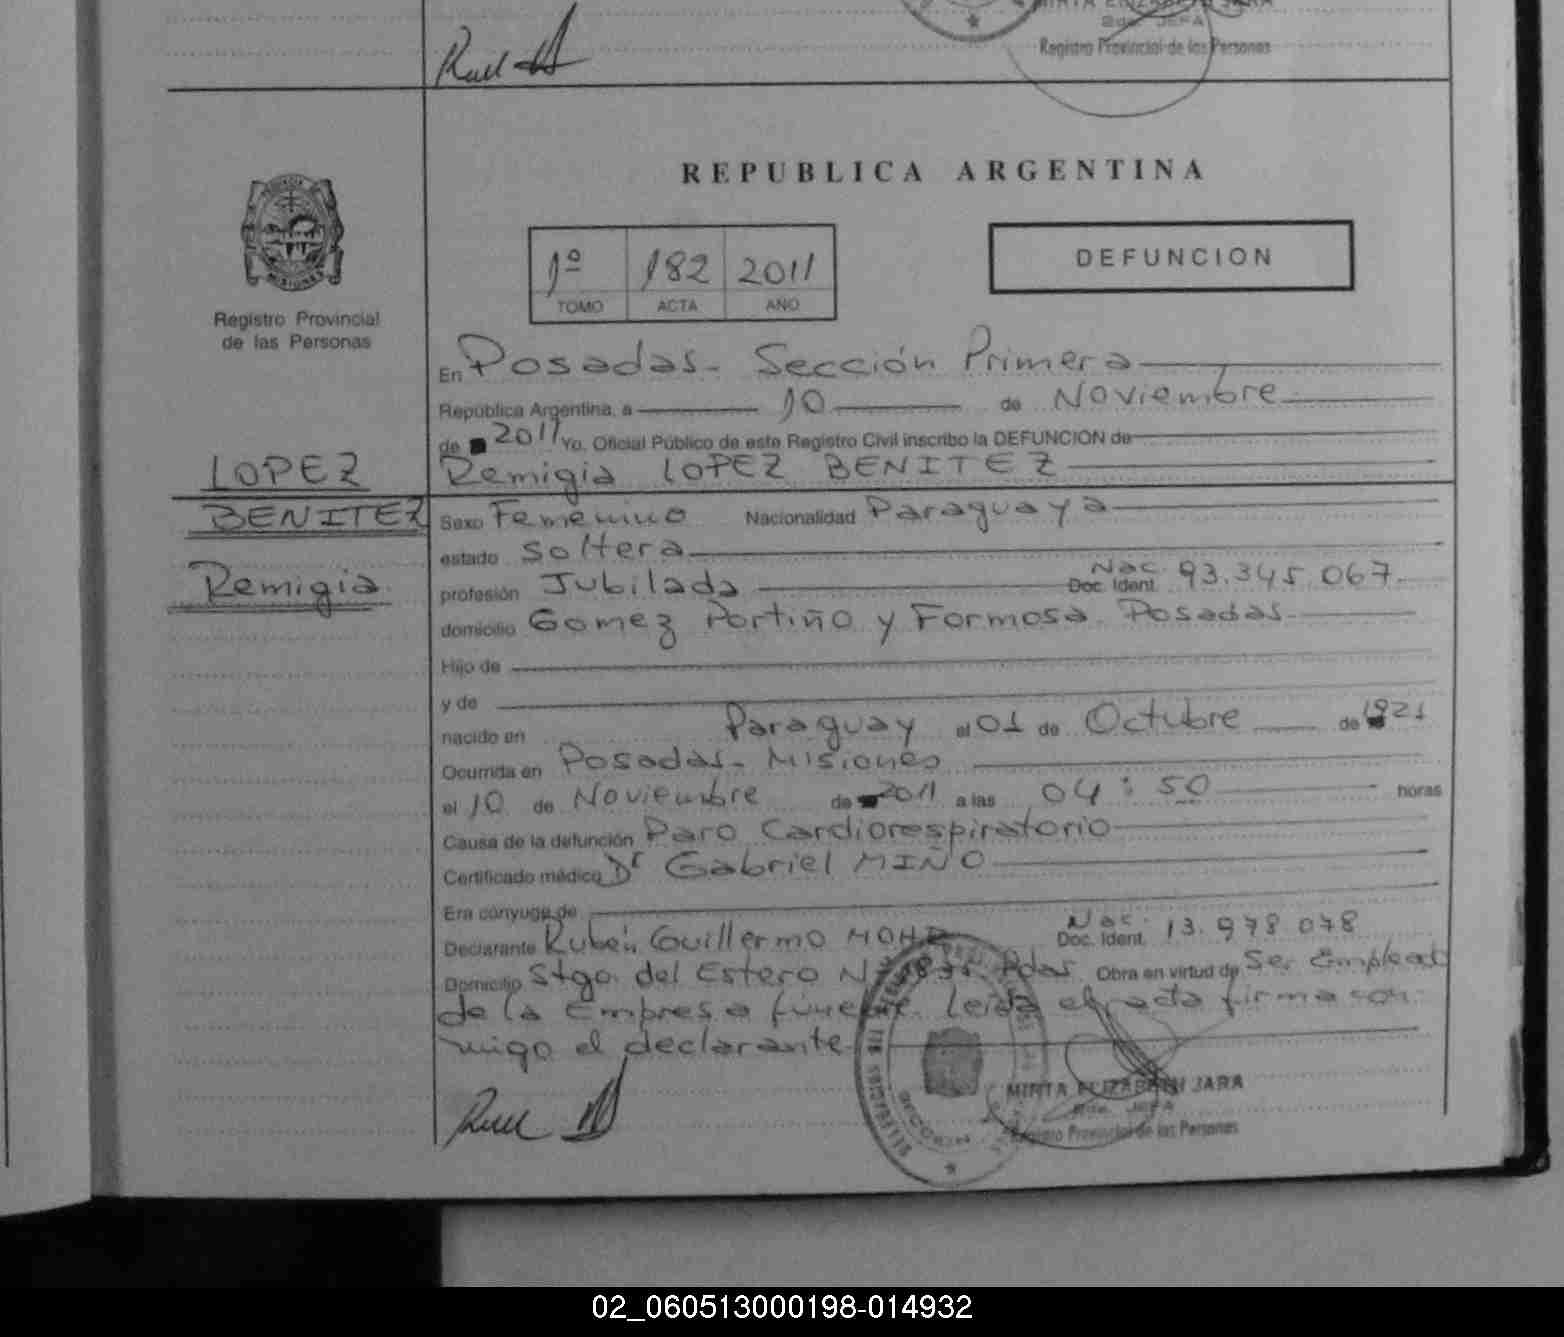 MIRTA ELIZABETH JARA
2da. JEFA
Registro Provincial de las Personas
REPUBLICA ARGENTINA
1º 182 2011
TOMO ACTA AÑO
DEFUNCION
MISIONES
Registro Provincial
de las Personas
En Posadas - Sección Primera
República Argentina, a 10 de Noviembre
de 2011 Yo, Oficial Público de este Registro Civil inscribo la DEFUNCION de
LOPEZ
BENITEZ
Remigia
Remigia LOPEZ BENITEZ
Sexo Femenino Nacionalidad Paraguaya
estado Soltera
profesión Jubilada Nac. Doc. Ident. 93.345.067
domicilio Gomez Portiño y Formosa. Posadas
Hijo de
y de
nacido en Paraguay el 01 de Octubre de 1921
Ocurrida en Posadas - Misiones
el 10 de Noviembre de 2011 a las 04:50 horas
Causa de la defunción Paro Cardiorespiratorio
Certificado médico Dr Gabriel MIÑO
Era cónyuge de
Declarante Rubén Guillermo Nac. Doc. Ident. 13.978.078
Domicilio Stgo. del Estero Pdas. Obra en virtud de Ser Emplead
de la Empresa funebre. Leida el acta firma con
migo el declarante
MIRTA ELIZABETH JARA
2da. JEFA
Registro Provincial de las Personas
02_060513000198-014932